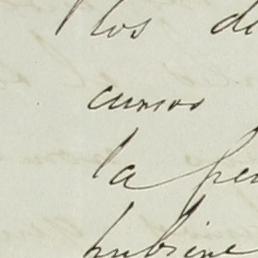 los de
cursos
la pe
hubiere